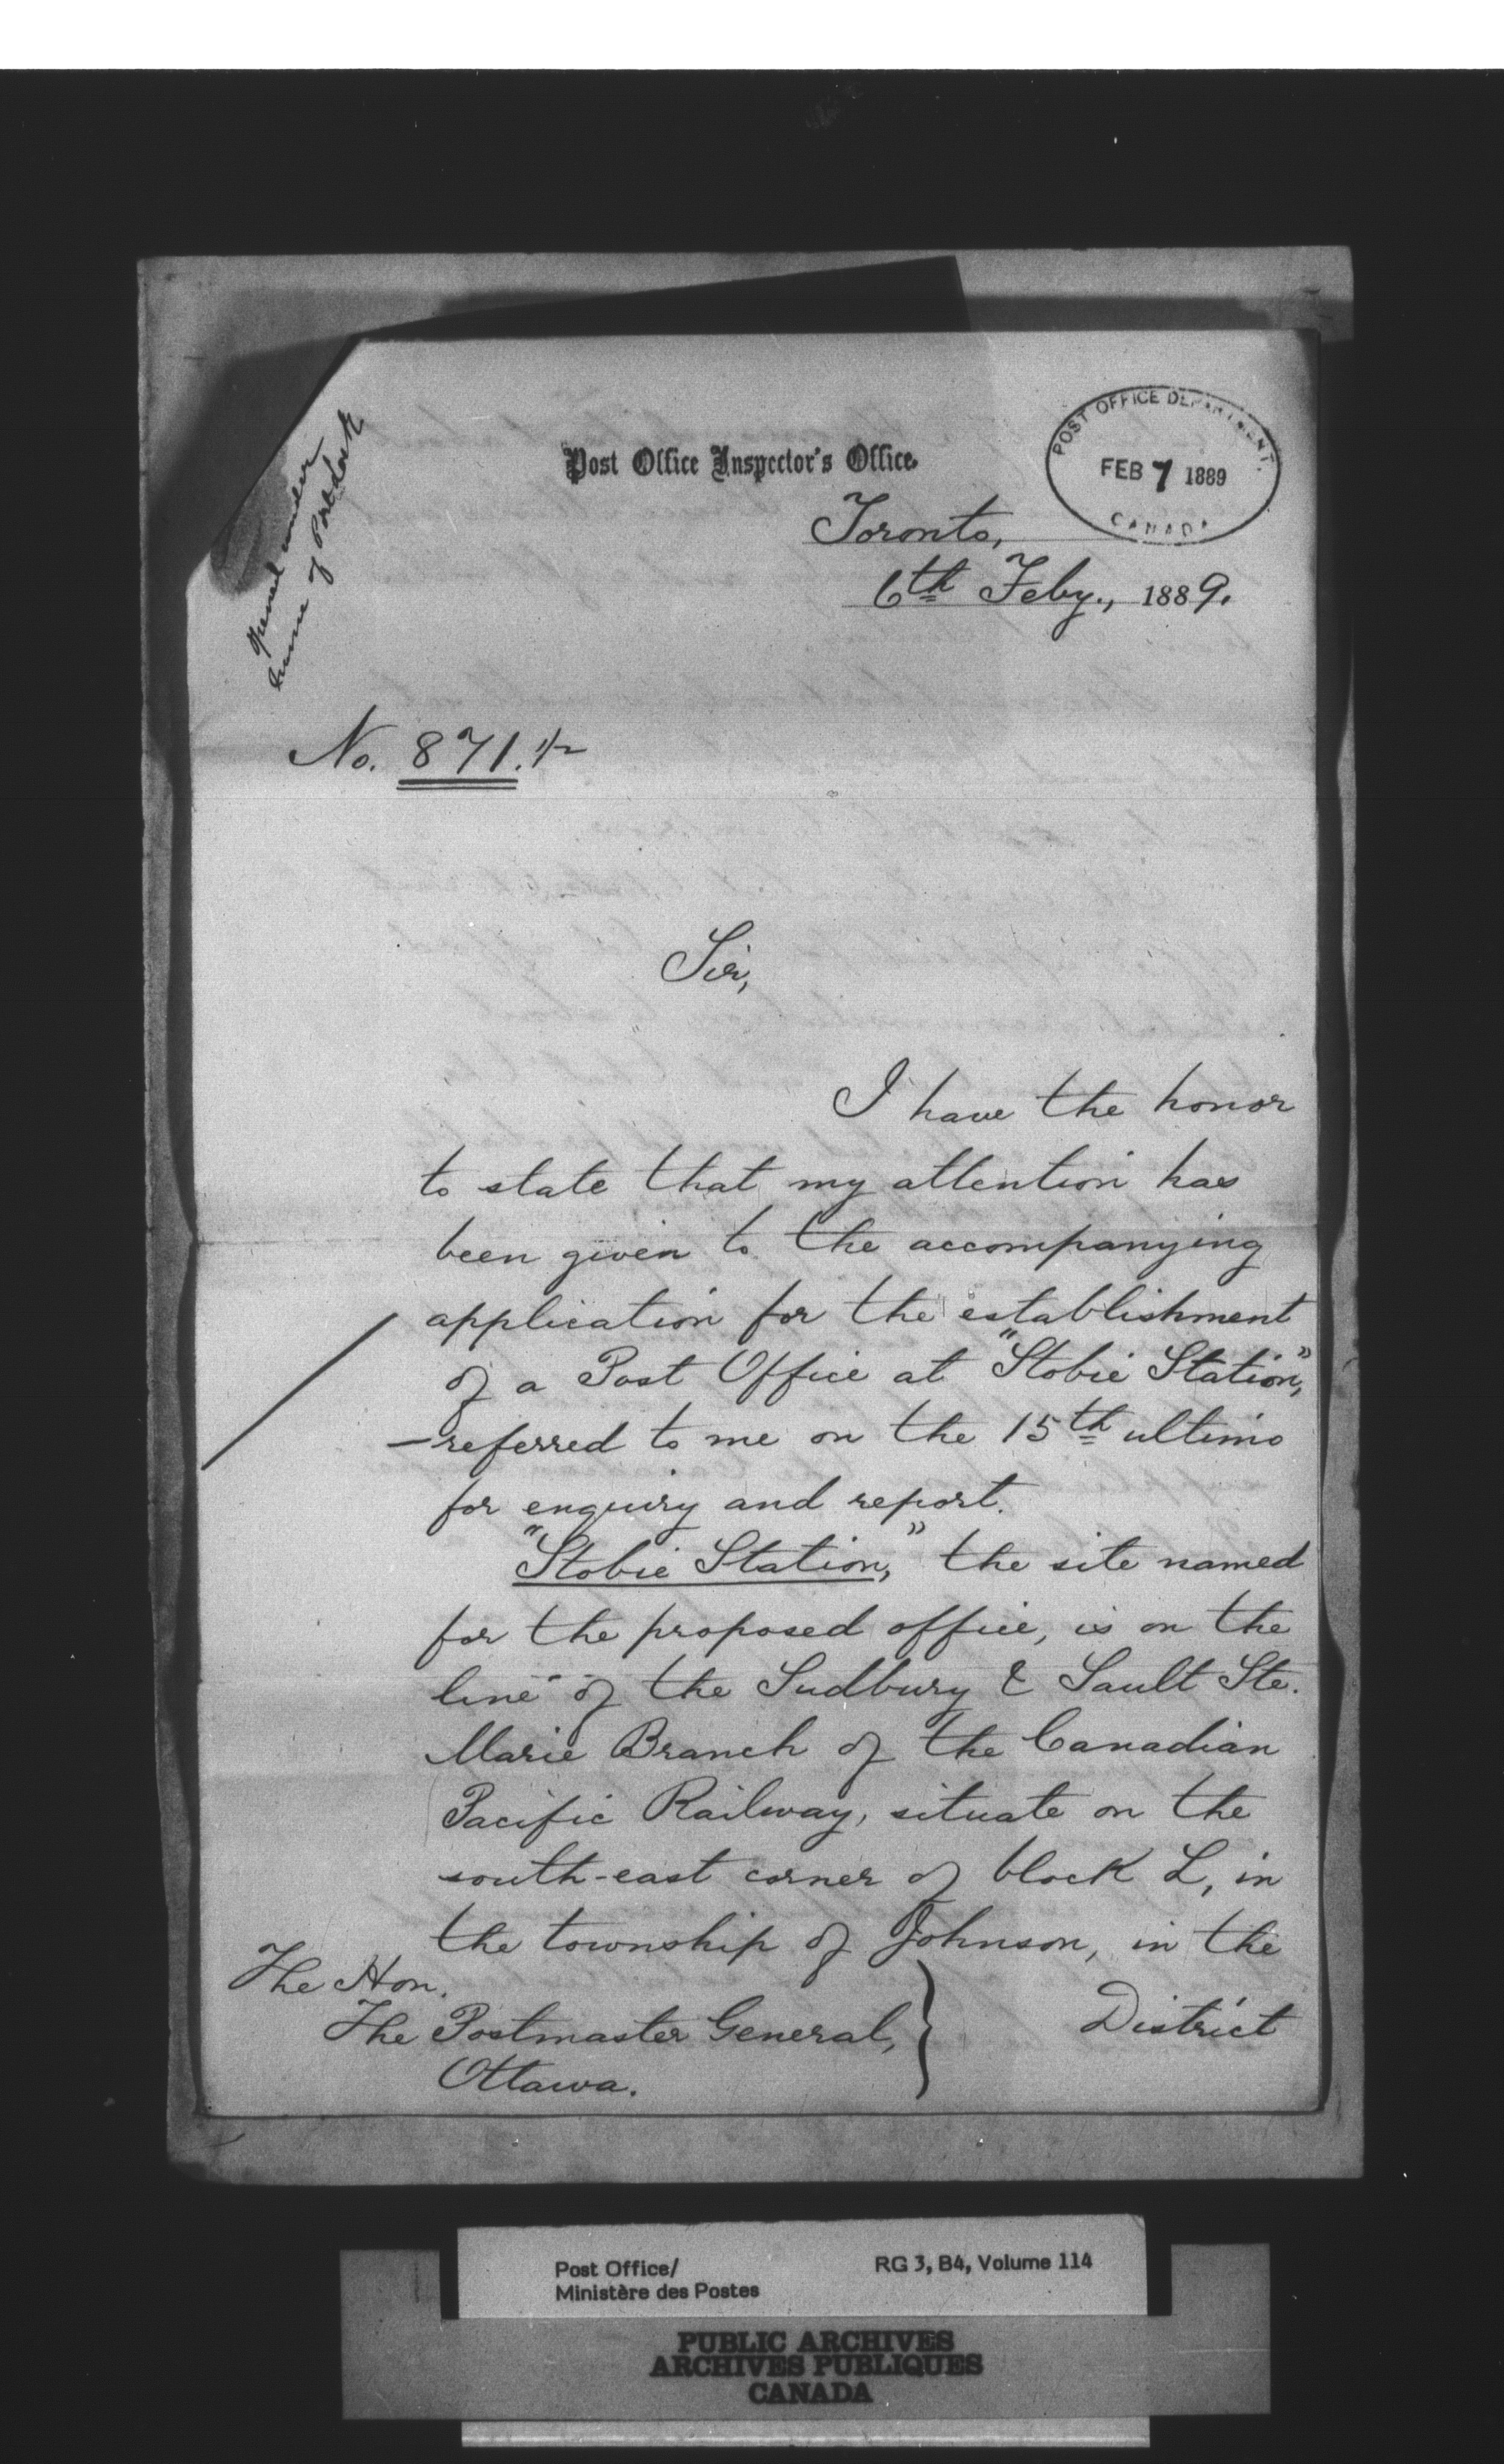 Opened under
name of Portlock
Post Office Inspector's Office.
POST OFFICE DEPARTMENT.
FEB 7 1889
CANADA
Toronto,
6th Feby., 1889.
No. 871.
Sir,
I have the honor
to state that my attention has
been given to the accompanying
application for the establishment
of a Post Office at "Stobie Station,"
—referred to me on the 15th ultimo
for enquiry and report.
"Stobie Station," the site named
for the proposed office, is on the
line of the Sudbury & Sault Ste.
Marie Branch of the Canadian
Pacific Railway, situate on the
south-east corner of block L, in
the township of Johnson, in the
District
The Hon.
The Postmaster General,
Ottawa.
Post Office/
Ministère des Postes
RG 3, B4, Volume 114
PUBLIC ARCHIVES
ARCHIVES PUBLIQUES
CANADA